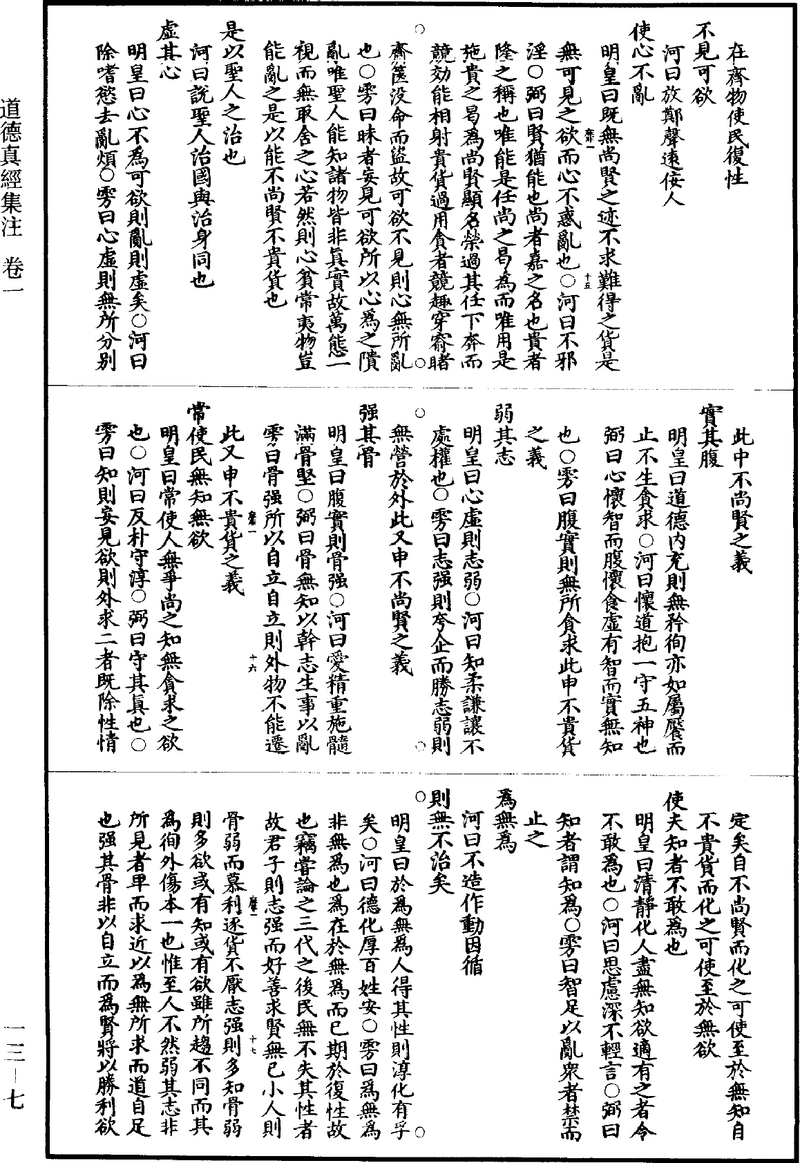 在齊物使民復性
不見可欲
河曰放鄭聲遠佞人
使心不亂
明皇曰旣無尚賢之迹不求難得之貨是
無可見之欲而心不惑亂也○河曰不邪
淫○弼曰賢猶能也尚者嘉之名也貴者
隆之稱也唯能是任尚之曷為而唯用是
施貴之曷為尚賢顯名榮過其任下奔而
競効能相射貴貨過用貪者競趣穿窬睹
齎篋没命而盜故可欲不見則心無所亂
也○雱曰昧者妄見可欲所以心為之隤
亂唯聖人能知諸物皆非真實故萬態一
視而無取舍之心若然則心貧常夷物豈
能亂之是以能不尚賢不貴貨也
是以聖人之治也
河曰説聖人治國與治身同也
虛其心
明皇曰心不為可欲則亂則虛矣○河曰
除嗜慾去亂煩○雱曰心虛則無所分别
此中不尚賢之義
實其腹
明皇曰道德内充則無矜徇亦如屬饜而
止不生貪求○河曰懷道抱一守五神也
弼曰心懷智而腹懷食虛有智而實無知
也○雱曰腹實則無所貪求此申不貴貨
之義
弱其志
明皇曰心虛則志弱○河曰知柔謙讓不
處權也○雱曰志强則夸企而勝志弱則
無營於外此又申不尚賢之義
强其骨
明皇曰腹實則骨强○河曰愛精重施髓
滿骨堅○弼曰骨無知以幹志生事以亂
雱曰骨强所以自立自立則外物不能遷
此又申不貴貨之義
常使民無知無欲
明皇曰常使人無爭尚之知無貪求之欲
也○河曰反朴守淳○弼曰守其真也○
雱曰知則妄見欲則外求二者旣除性情
定矣自不尚賢而化之可使至於無知自
不貴貨而化之可使至於無欲
使夫知者不敢為也
明皇曰清靜化人盡無知欲適有之者令
不敢為也○河曰思慮深不輕言○弼曰
知者謂知為○雱曰智足以亂衆者禁而
止之
為無為
河曰不造作動因循
則無不治矣
明皇曰於為無為人得其性則淳化有孚
矣○河曰德化厚百姓安○雱曰為無為
非無為也為在於無為而已期於復性故
也竊嘗論之三代之後民無不失其性者
故君子則志强而好善求賢無已小人則
骨弱而慕利逐貨不厭志强則多知骨弱
則多欲或有知或有欲雖所趨不同而其
為徇外傷本一也惟至人不然弱其志非
所見者卑而求近以為無所求而道自足
也强其骨非以自立而為賢將以勝利欲
道德真經集注 卷一
一三－七
十五
十六
十七